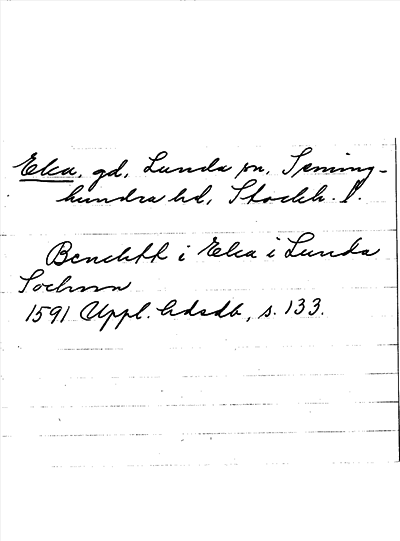 Elca, gd, Lunda sn, Seming-
hundra hd, Stockh. l.
Benchtt i Elca i Lunda
Sochnn
1591 Uppl. hdsdb, s. 133.